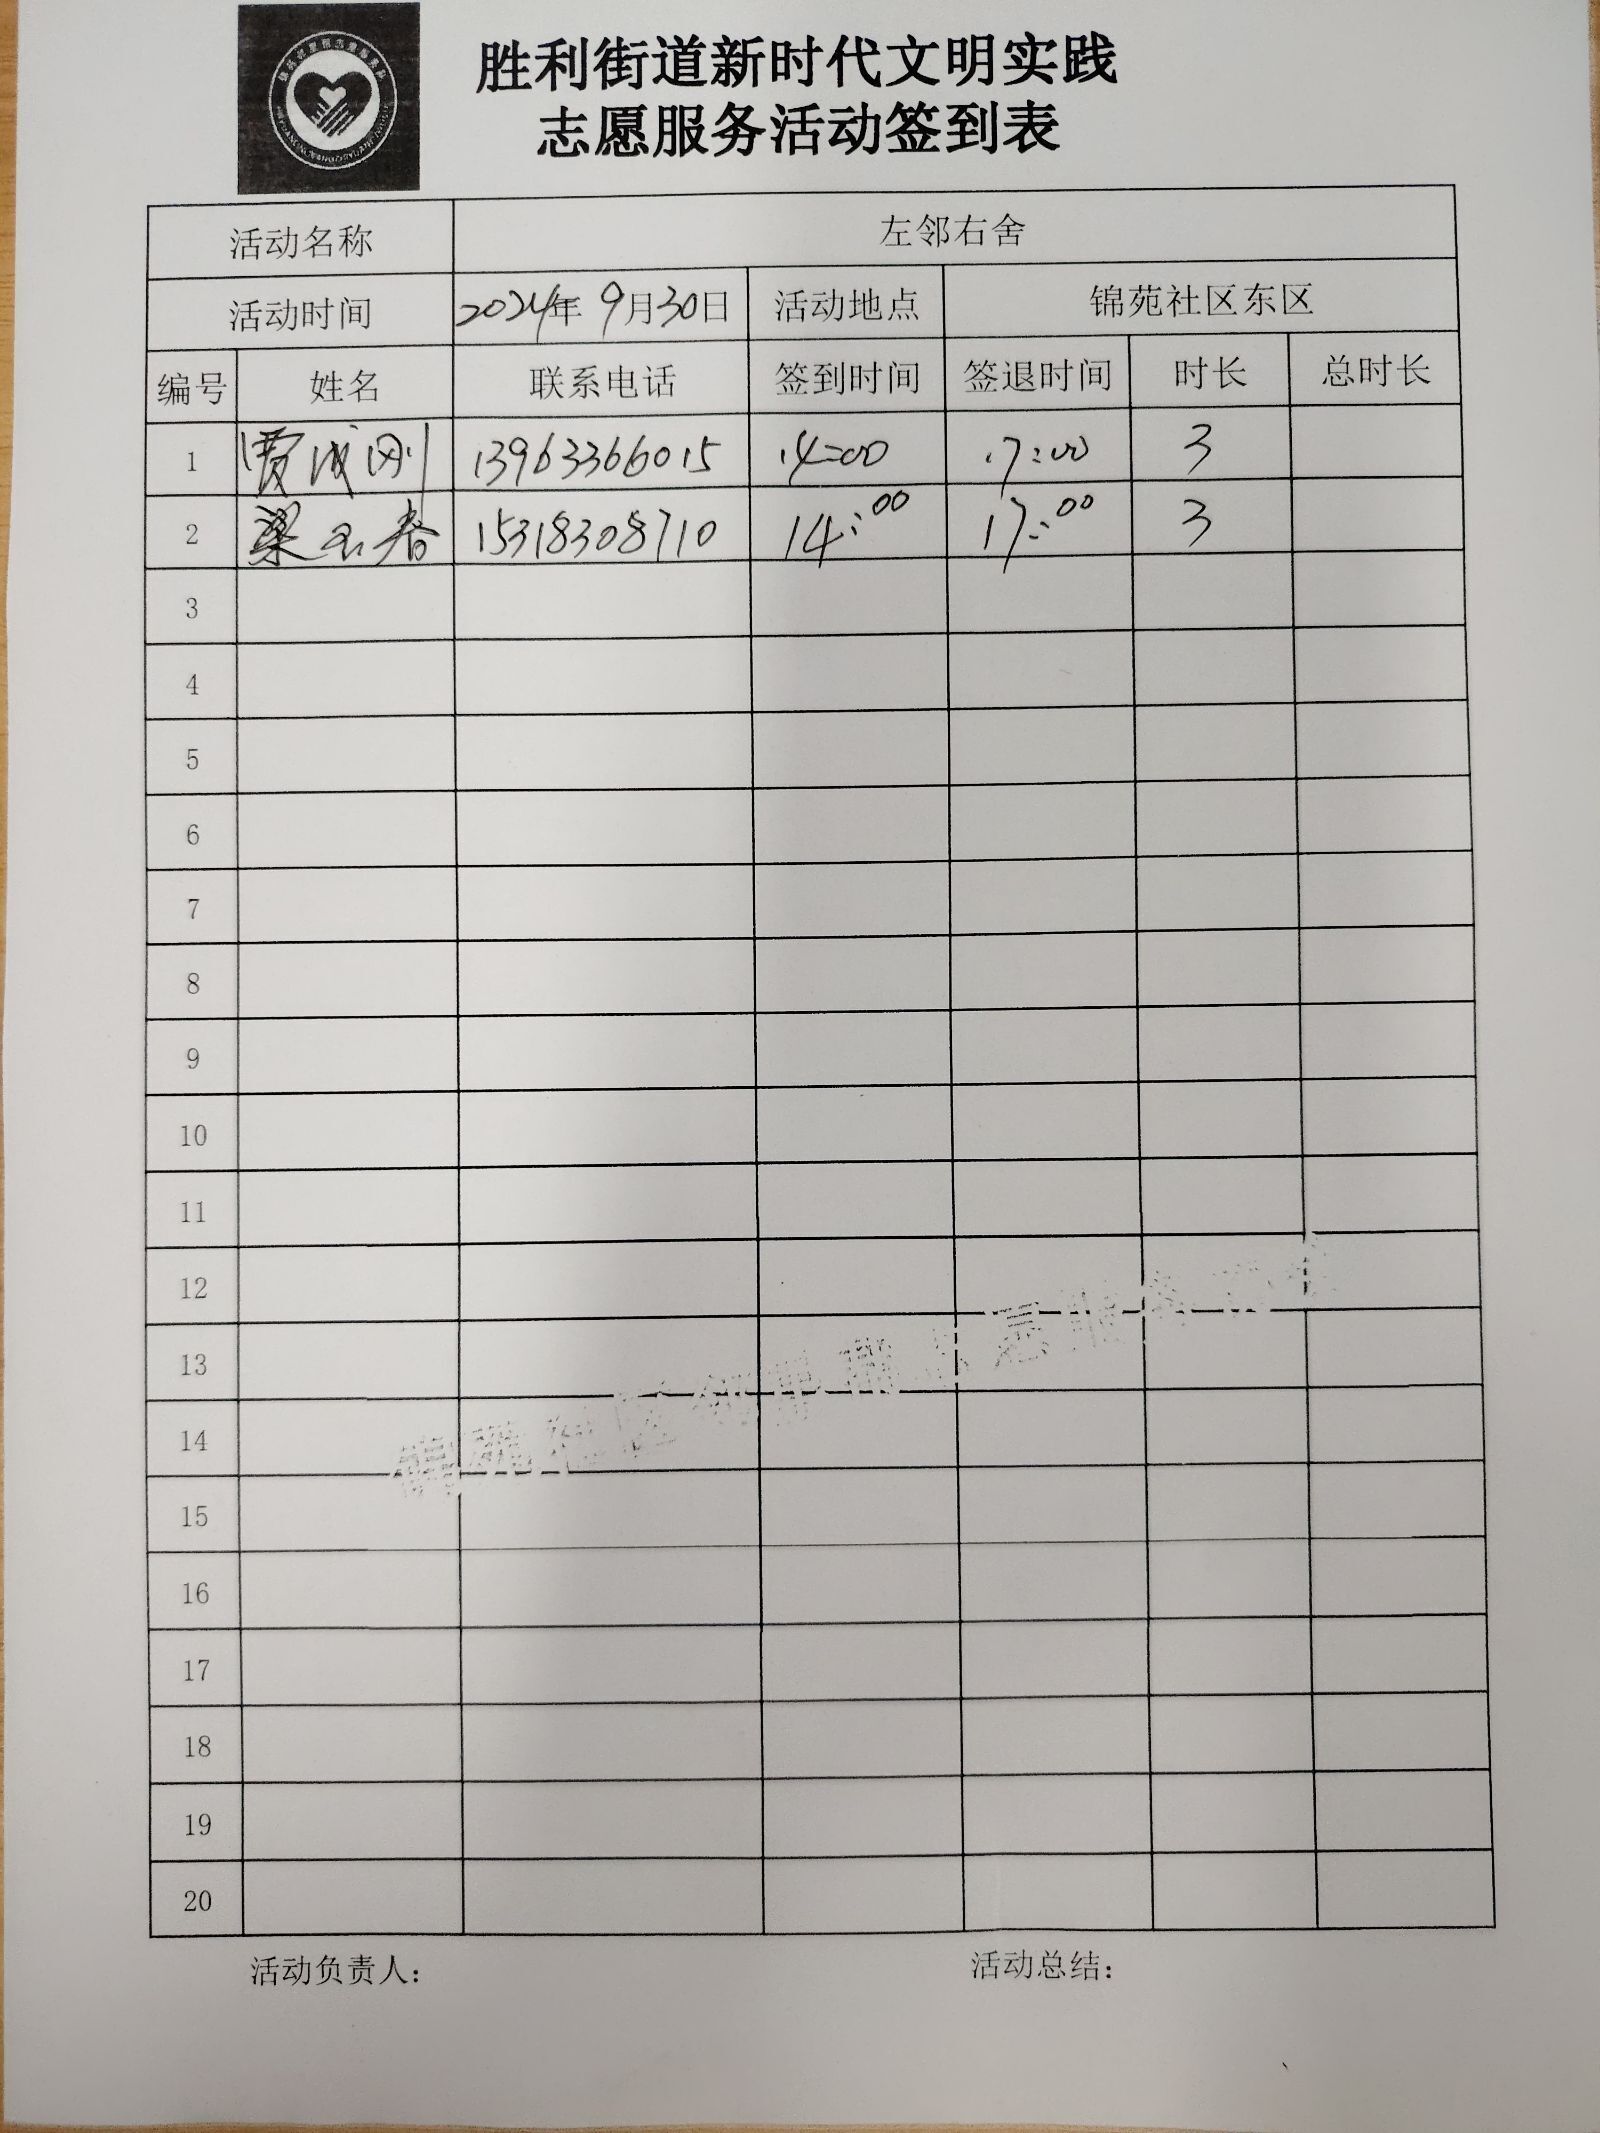 胜利街道新时代文明实践
志愿服务活动签到表
活动名称 左邻右舍
活动时间 2024年 9月30日 活动地点 锦苑社区东区
编号 姓名 联系电话 签到时间 签退时间 时长 总时长
1 贾成刚 13963366015 14:00 17:00 3
2 梁玉春 15318308710 14:00 17:00 3
3
4
5
6
7
8
9
10
11
12
13
14
15
16
17
18
19
20
活动负责人： 活动总结：